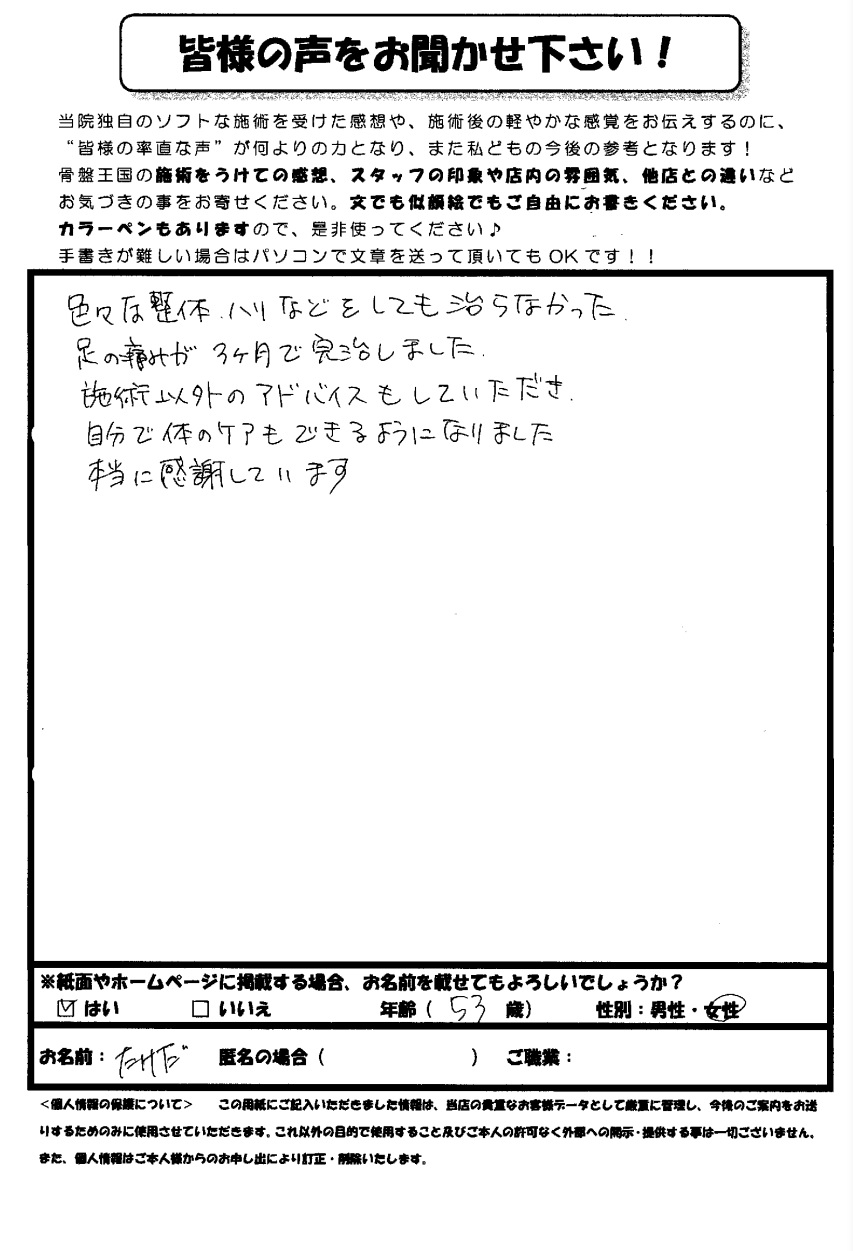 皆様の声をお聞かせ下さい！
当院独自のソフトな施術を受けた感想や、施術後の軽やかな感覚をお伝えするのに、
“皆様の率直な声”が何よりの力となり、また私どもの今後の参考となります！
骨盤王国の施術をうけての感想、スタッフの印象や店内の雰囲気、他店との違いなど
お気づきの事をお寄せください。文でも似顔絵でもご自由にお書きください。
カラーペンもありますので、是非使ってください♪
手書きが難しい場合はパソコンで文章を送って頂いてもOKです！！
色々な整体、ハリなどをしても治らなかった、
足の痛みが 3ヶ月で完治しました、
施術以外のアドバイスもしていただき、
自分で体のケアもできるようになりました
本当に感謝しています
※紙面やホームページに掲載する場合、お名前を載せてもよろしいでしょうか？
☑はい □いいえ 年齢（ 53 歳） 性別：男性・女性
お名前：たけだ 匿名の場合（ ） ご職業：
＜個人情報の保護について＞ この用紙にご記入いただきました情報は、当店の貴重なお客様データとして厳重に管理し、今後のご案内をお送
りするためのみに使用させていただきます。これ以外の目的で使用すること及びご本人の許可なく外部への開示・提供する事は一切ございません。
また、個人情報はご本人様からのお申し出により訂正・削除いたします。